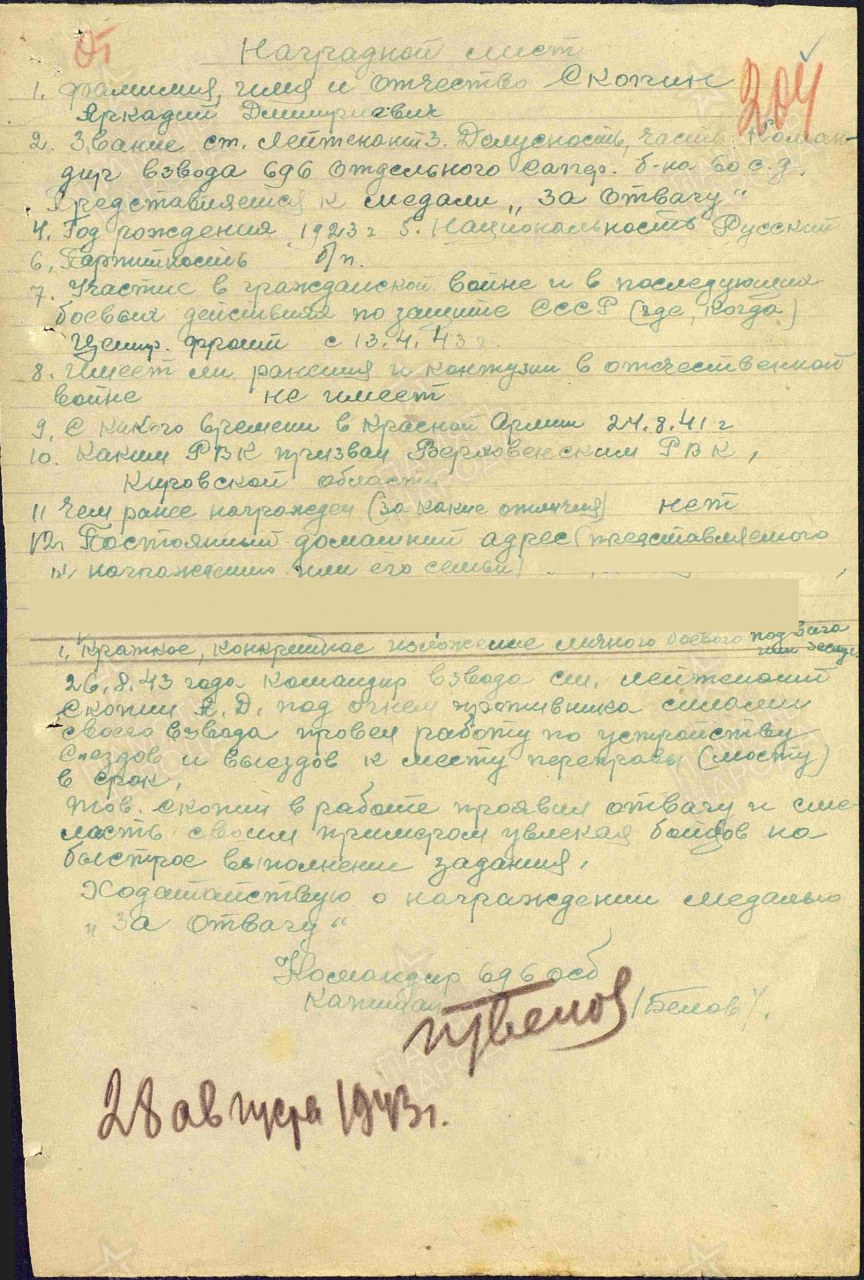 204
Наградной лист
1. Фамилия, имя и отчество Скопин
Аркадий Дмитриевич
2. Звание ст. Лейтенант 3. Должность, часть Коман-
дир взвода 696 отдельного Сапер. б-на 60 с.д.
Представляется к медали „За отвагу“
4. Год рождения 1923 г 5. Национальность Русский
6. Партийность б/п.
7. Участие в гражданской войне и в последующих
боевых действиях по защите СССР (где, когда)
Центр. фронт с 13.4.43 г.
8. Имеет ли ранения и контузии в отечественной
войне не имеет
9. С какого времени в Красной Армии 24.8.41 г
10. Каким РВК призван РВК,
Кировской области
11 Чем ранее награжден (за какие отличия) нет
12. Постоянный домашний адрес (представляемого
к награждению или его семьи)
1. Краткое, конкретное изложение личного боевого подвига
или заслуг
26.8.43 года командир взвода ст. лейтенант
Скопин А.Д. под огнем противника силами
своего взвода провел работу по устройству
съездов и выездов к месту переправы (мосту)
в срок,
тов. Скопин в работе проявил отвагу и сме
лость своим примером увлекая бойцов на
быстрое выполнение задания,
Ходатайствую о награждении медалью
„За отвагу“
Командир 696 осб
Капитан /Белов/.
28 августа 1943 г.